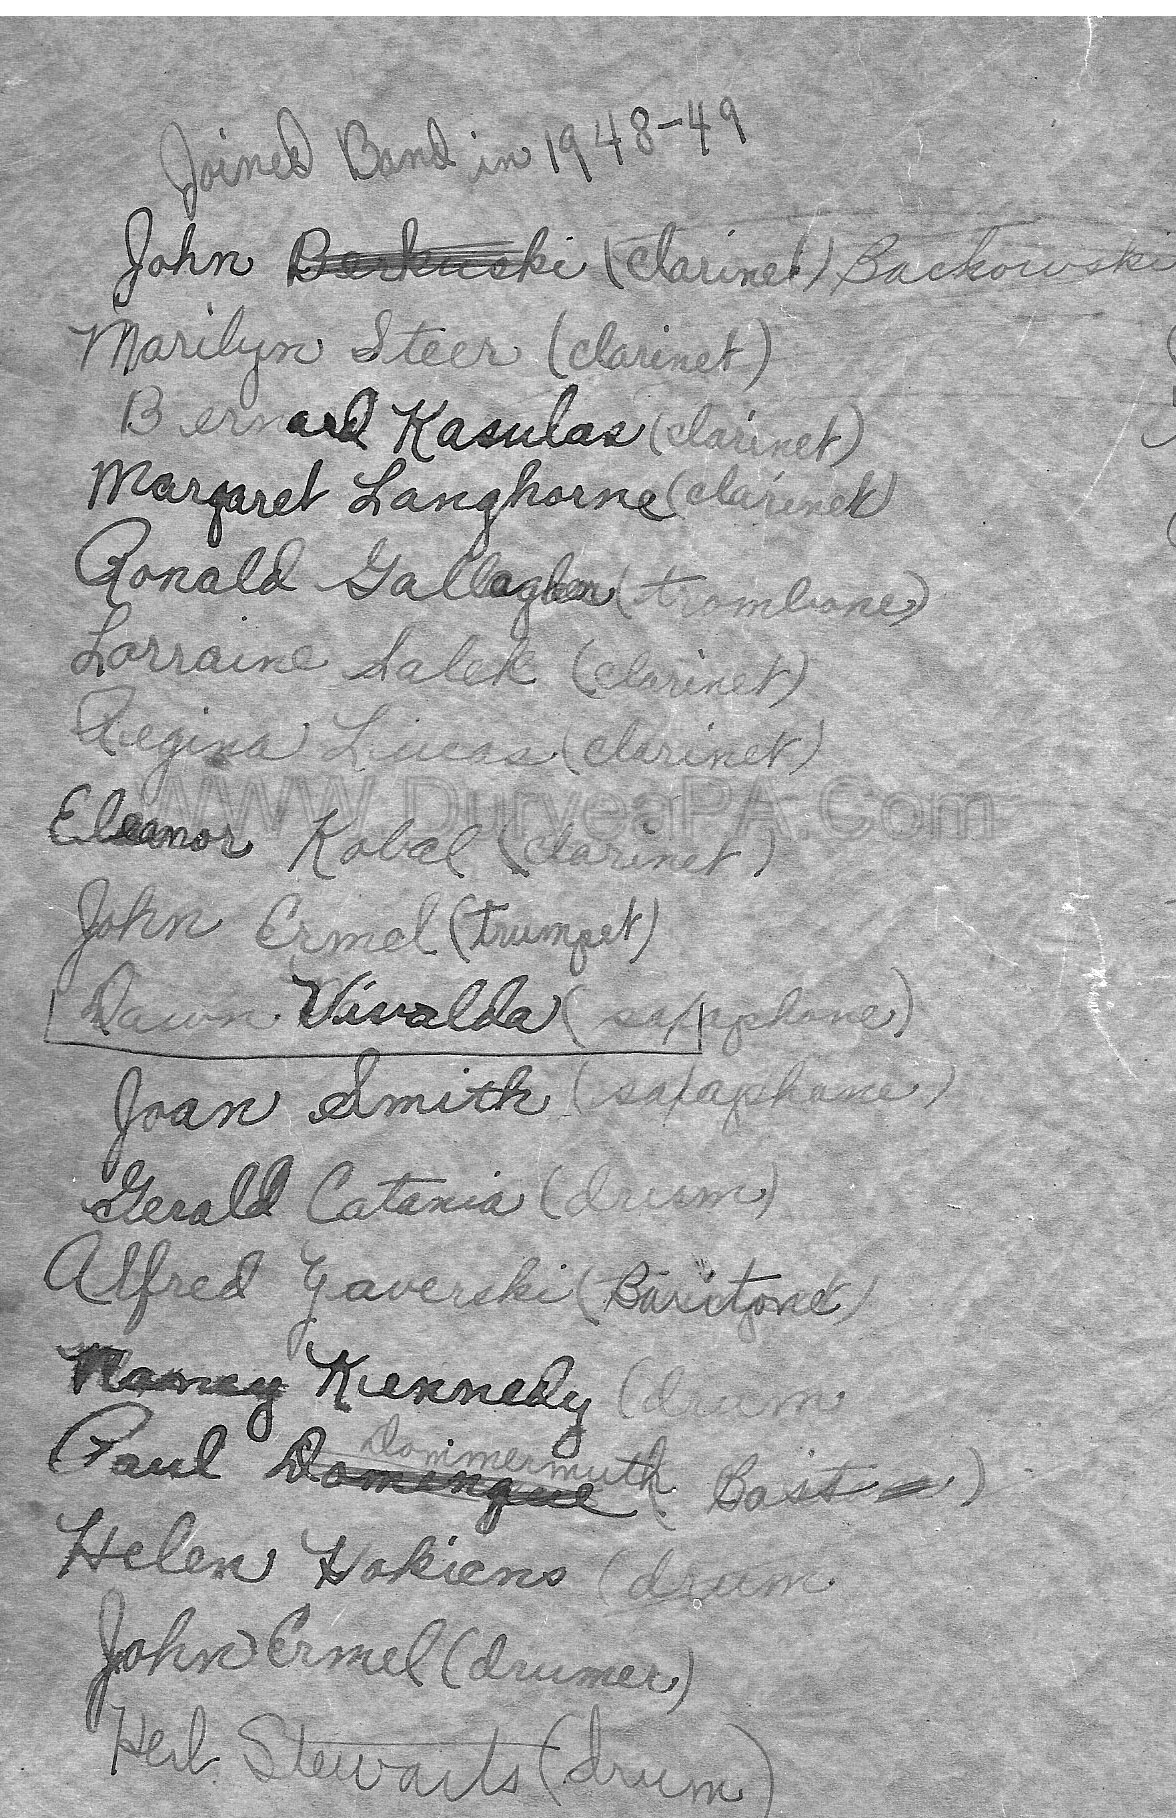 Joined Band in 1948-49
John Berkuski (clarinet) Backowski
Marilyn Steer (clarinet)
Bernard Kasulas (clarinet)
Margaret Langhorne (clarinet)
Ronald Gallagher (trombone)
Lorraine Salek (clarinet)
Regina Lucas (clarinet)
WWW.DuryeaPA.Com
Eleanor Kobal (clarinet)
John Ermel (trumpet)
Dawn Vivalda (saxaphone)
Joan Smith (saxaphone)
Gerald Catania (drum)
Alfred Yaverski (Baritone)
Nancy Kennedy (drum
Dommermuth
Paul Domingue (Bast)
Helen Hokiens (drum
John Ermel (drumer)
Herb Stewarts (drum)